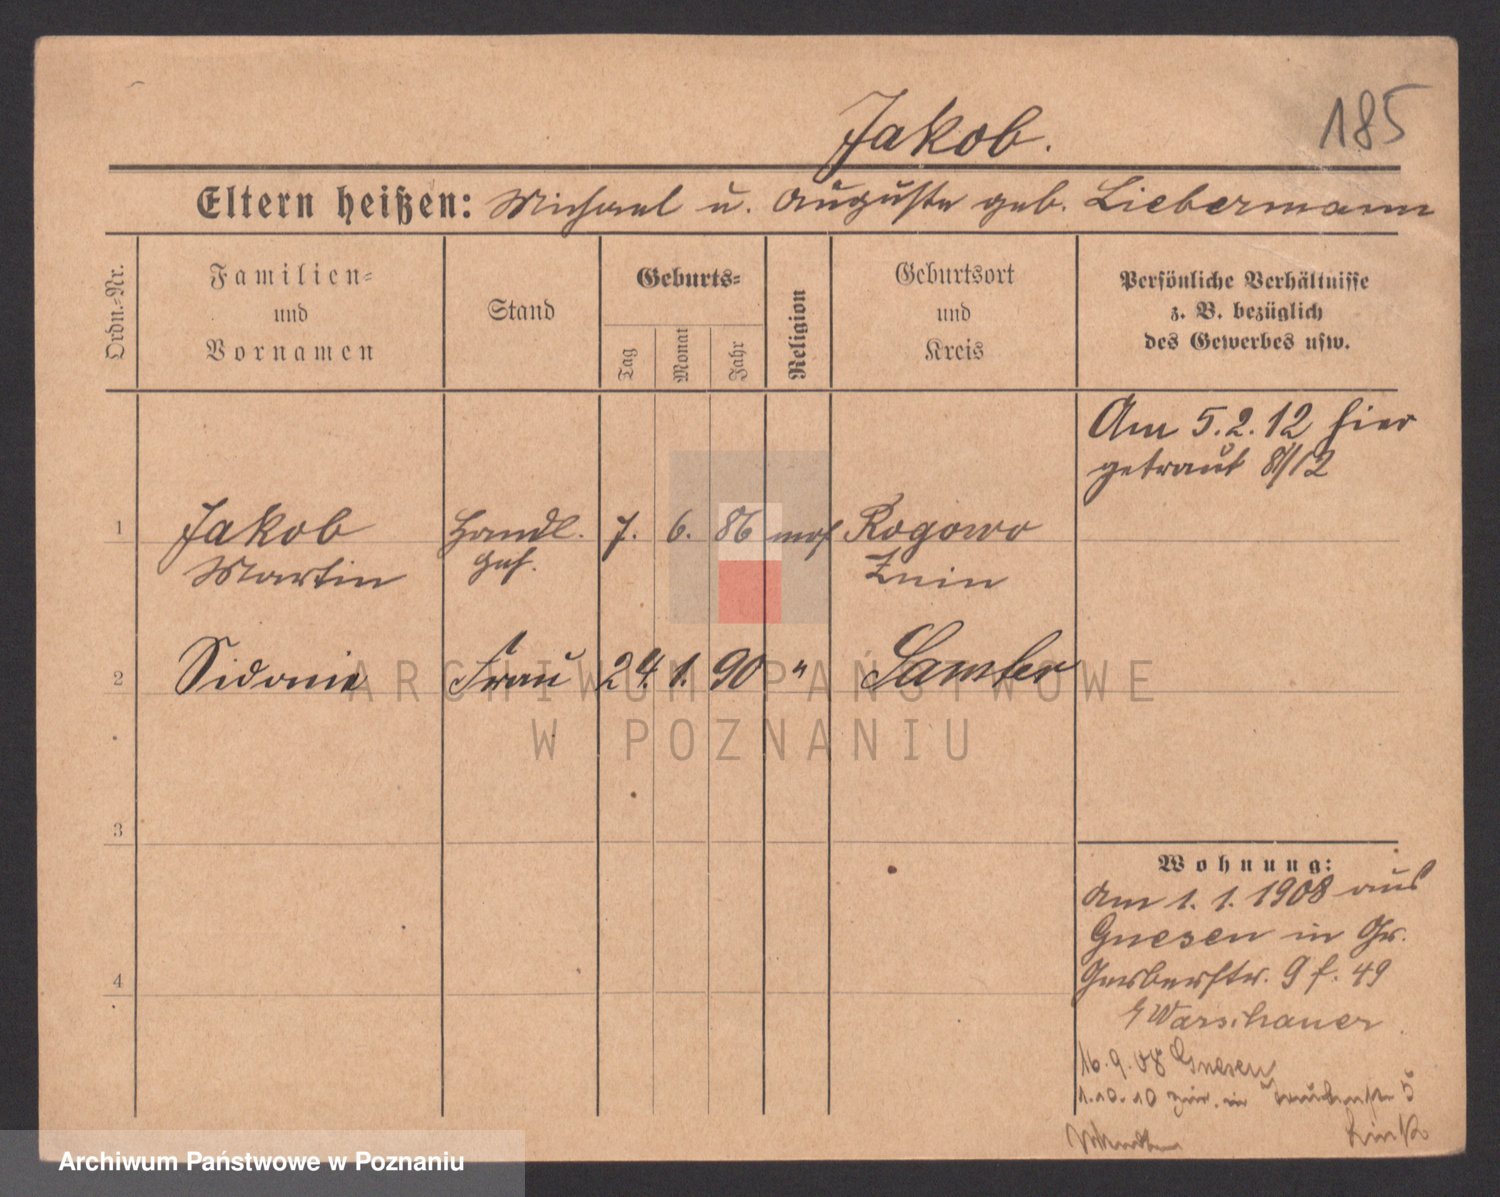 185
Jakob.
Eltern heißen: Michael u. Auguste geb. Liebermann
Ordn.-Nr.
Familien-
und
Vornamen
Stand
Geburts-
Tag
Monat
Jahr
Religion
Geburtsort
und
Kreis
Persönliche Verhältnisse
z. B. bezüglich
des Gewerbes usw.
Am 5.2.12 hier
getraut 8/12
1 Jakob Handl. 7. 6. 86 mos Rogowo
Martin Geh. Znin
2 Sidonie Frau 24. 1. 90 " Samter
3
Wohnung:
Am 1. 1. 1908 aus
Gnesen in Gr.
Gerberstr. 9 f. 49
Warschauer
4
16.9.08 Gnesen
1.10.10 zur. in 5
ARCHIWUM PAŃSTWOWE
W POZNANIU
Archiwum Państwowe w Poznaniu